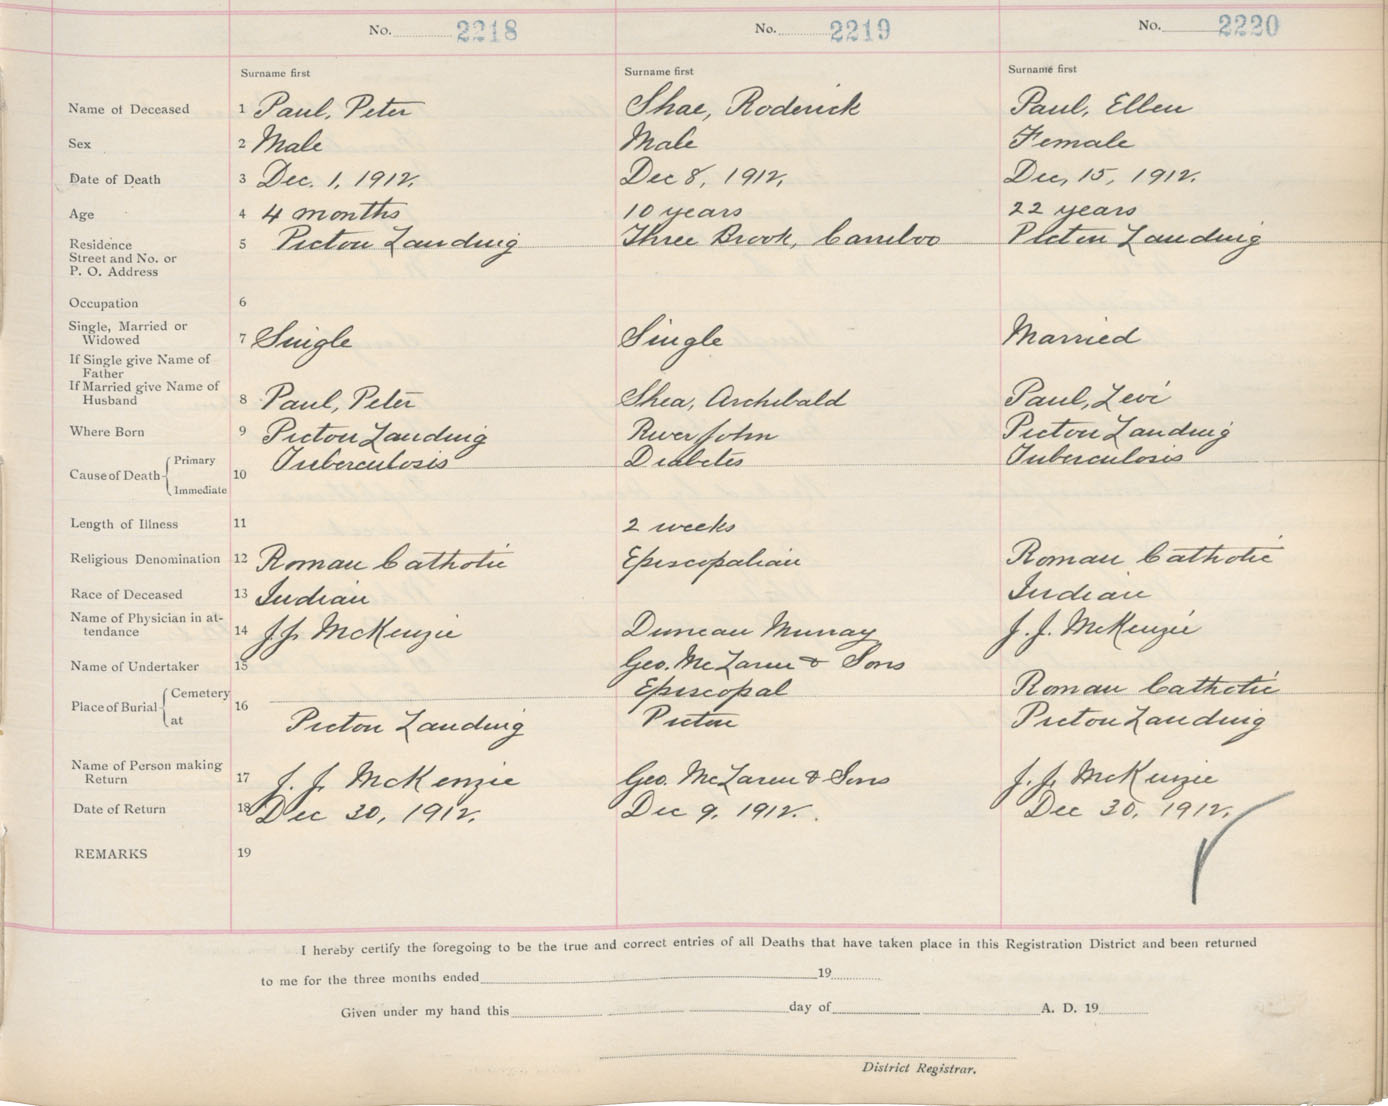 No. 2218 No. 2219 No. 2220
Surname first Surname first Surname first
Name of Deceased 1 Paul, Peter Shae, Roderick Paul, Ellen
Sex 2 Male Male Female
Date of Death 3 Dec. 1, 1912. Dec 8, 1912. Dec, 15, 1912.
Age 4 4 months 10 years 22 years
Residence 5 Pictou Landing Three Brook, Carriboo Pictou Landing
Street and No. or
P. O. Address
Occupation 6
Single, Married or
Widowed 7 Single Single Married
If Single give Name of
Father
If Married give Name of
Husband 8 Paul, Peter Shea, Archibald Paul, Levi
Where Born 9 Pictou Landing River John Pictou Landing
Cause of Death Primary 10 Tuberculosis Diabetes Tuberculosis
Immediate
Length of Illness 11 2 weeks
Religious Denomination 12 Roman Catholic Episcopalian Roman Catholic
Race of Deceased 13 Indian Indian
Name of Physician in at-
tendance 14 J.J. McKenzie Duncan Murray J. J. McKenzie
Name of Undertaker 15 Geo. McLaren & Sons
Place of Burial Cemetery 16 Episcopal Roman Catholic
at Pictou Landing Pictou Pictou Landing
Name of Person making
Return 17 J. J. McKenzie Geo. McLaren & Sons J. J. McKenzie
Date of Return 18 Dec 30, 1912. Dec 9, 1912. Dec 30, 1912.
REMARKS 19
I hereby certify the foregoing to be the true and correct entries of all Deaths that have taken place in this Registration District and been returned
to me for the three months ended 19
Given under my hand this day of A. D. 19
District Registrar.